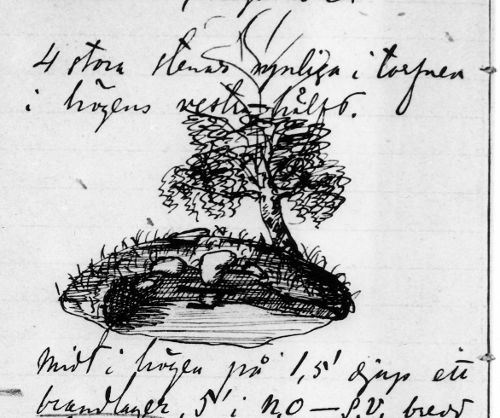 4 stora stenar synliga i torfven
i högens vestra hälft.
Midt i högen på 1,5' djup ett
brandlager, 5' i NO–S.V. bredd